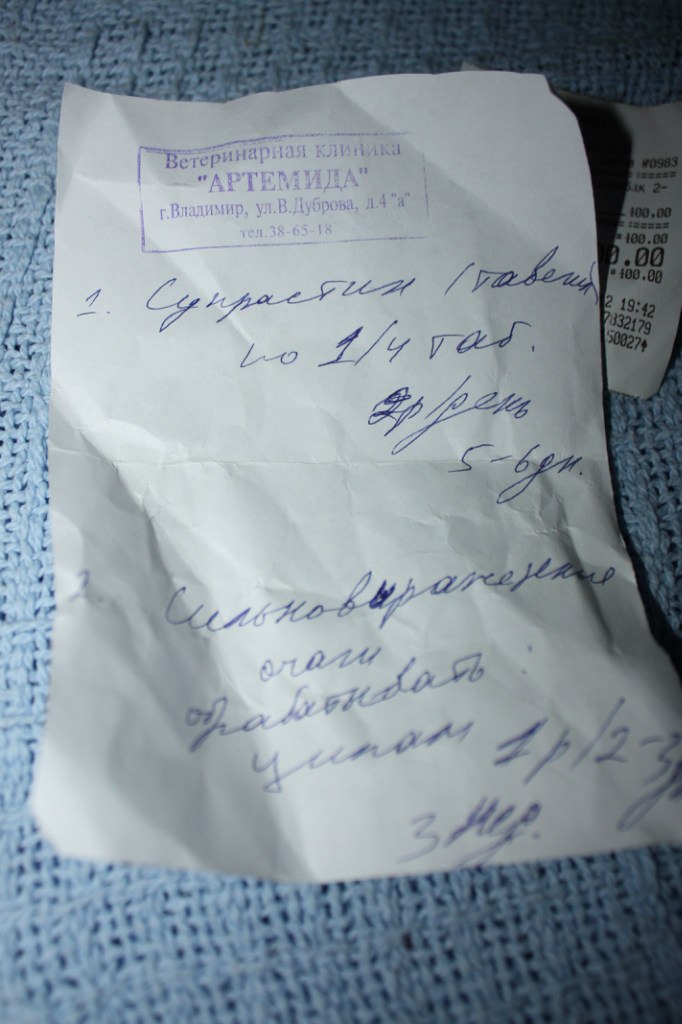 Ветеринарная клиника
"АРТЕМИДА"
г.Владимир, ул.В.Дуброва, д.4 "а"
тел.38-65-18
1. Супрастин (тавегил
по 1/4 таб.
2р/день
5-6дн.
2. Сильновыраженные
очаги
обрабатывать
1р/2-3
3 нед.
№0983
2-
100.00
*100.00
0.00
*100.00
2 19:42
7832179
50027